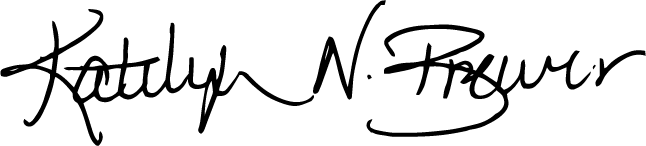 Katelyn N. Brewer